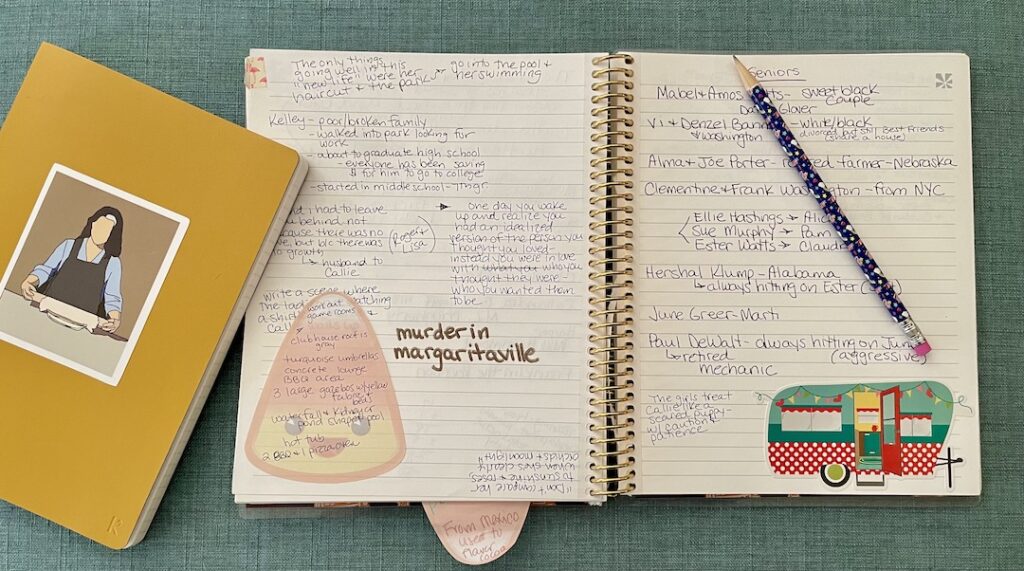 The only things
going well in this
"new life" were her
haircut & the park
go into the pool &
her swimming
Kelley - poor/broken family
- walked into park looking for
work
- about to graduate high school
- everyone has been saving
$ for him to go to college
- started in middle school -
I had to leave
behind not
because there was no
but b/c there was
no growth
↳ husband to
Callie
(Roger &
Lisa)
→ one day you wake
up and realize you
had an idealized
version of the person you
thought you loved
instead you were in love
with what you who you
thought they were -
who you wanted them
to be
write a scene where
the ladies watching
a shirt
Calli
workout
game rooms
clubhouse roof is
gray
turquoise umbrellas
concrete lounge
BBQ area
3 large gazebos w/yellow
fabric
waterfall &
pond shaped pool
hot tub
2 BBQ & 1 pizza oven
murder in
margaritaville
"Don't compare her
to sunshine & roses
when she's clearly
orchids & moonlight
From Mexico
used to
flavor
Seniors
Mabel & Amos Watts - sweet black
couple
Glover
Vi & Denzel - white/black
Washington divorced but still Best Friends
(share a house)
Alma & Joe Porter - retired farmer - Nebraska
Clementine & Frank Washington - from NYC
Ellie Hastings →
Sue Murphy → Pam
Ester Watts →
Hershal Klump - Alabama
↳ always hitting on Ester
June Greer - Marti
Paul DeWalt - always hitting on June
↳ retired (aggressive)
mechanic
The girls treat
Callie like a
scared puppy -
w/ caution &
patience